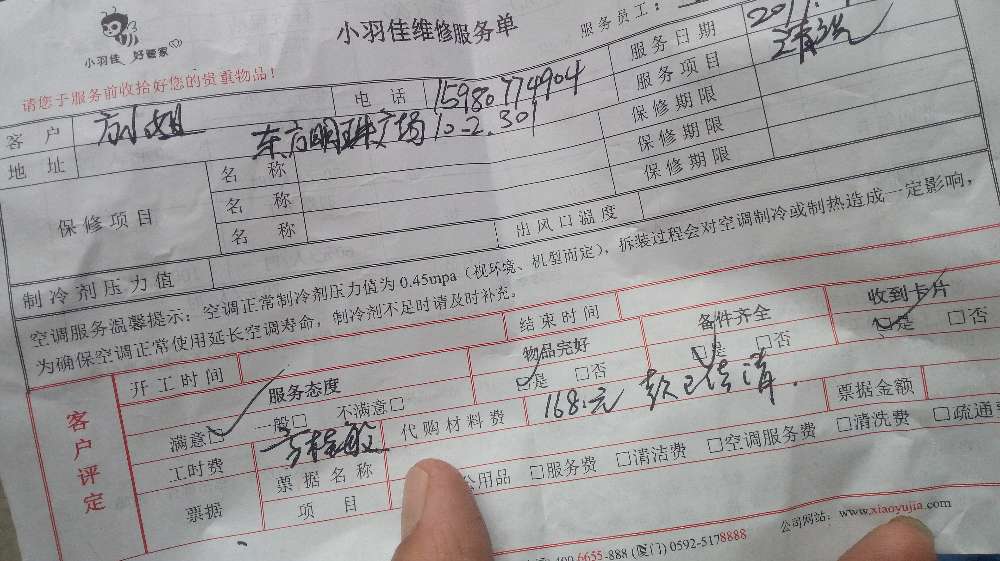 小羽佳 好管家
小羽佳维修服务单
服务员工：
请您于服务前收拾好您的贵重物品！
客 户 电 话 15980774904 服务日期 2017.
地 址 东方明珠广场10-2.301 服务项目 清洗
保修项目
名 称 保修期限
名 称 保修期限
名 称 保修期限
制冷剂压力值 出风口温度
空调服务温馨提示：空调正常制冷剂压力值为0.45mpa（视环境、机型而定），拆装过程会对空调制冷或制热造成一定影响，
为确保空调正常使用延长空调寿命，制冷剂不足时请及时补充。
客户评定
开工时间 结束时间
服务态度 物品完好 备件齐全 收到卡片
满意□ 一般□ 不满意□ □是 □否 □是 □否 □是 □否
工时费 代购材料费 168.元 款已结清. 票据金额
票据 票据名称
项 目 公用品 □服务费 □清洁费 □空调服务费 □清洗费 □疏通
400 6655-888 (厦门) 0592-5178888 公司网站：www.xiaoyujia.com